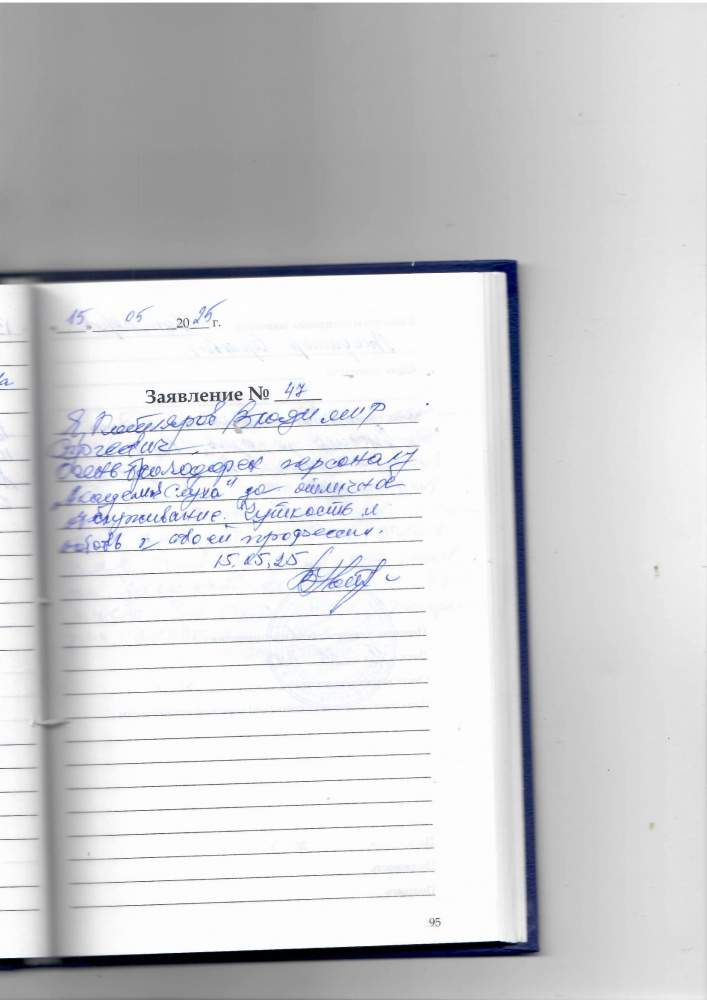 15 05 2025 г.
Заявление № 47
Я, Владимир
Сергеевич
очень благодарен персоналу
"Академия Слуха" за отличное
обслуживание. Чуткость и
любовь к своей профессии.
15.05.25
95